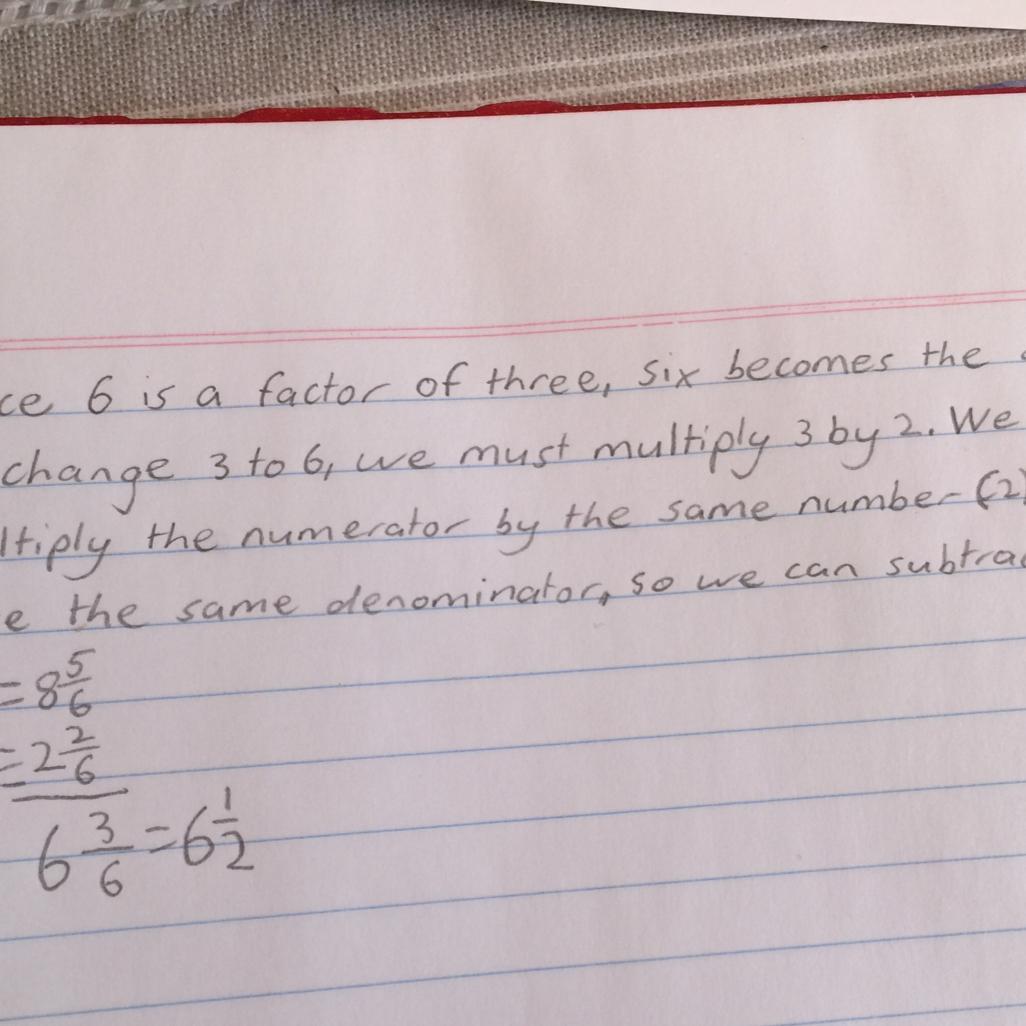 ce 6 is a factor of three, six becomes the
change 3 to 6, we must multiply 3 by 2. We
ltiply the numerator by the same number (2)
e the same denominator, so we can subtrac
= 8 5/6
= 2 2/6
6 3/6 = 6 1/2